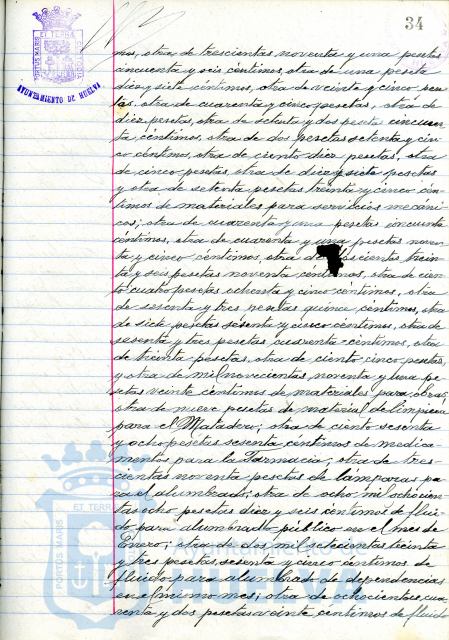 34
PORTUS MARIS ET TERRAE CUSTODIA
AYUNTAMIENTO DE HUELVA
mos, otra de trescientas noventa y una pesetas
cincuenta y seis céntimos, otra de una peseta
diez y siete céntimos, otra de veinte y cinco pese
tas, otra de cuarenta y cinco pesetas, otra de
diez pesetas, otra de ochenta y dos pesetas cincuen
ta céntimos, otra de dos pesetas setenta y cin
co céntimos, otra de ciento diez pesetas, otra
de cinco pesetas, otra de diez y siete pesetas
y otra de setenta pesetas treinta y cinco cén
timos de materiales para servicios mecáni
cos; otra de cuarenta y una pesetas cincuenta
céntimos, otra de cuarenta y una pesetas noven
ta y cinco céntimos, otra de doscientas trein
ta y seis pesetas noventa céntimos, otra de cien
to cuatro pesetas ochenta y cinco céntimos, otra
de sesenta y tres pesetas quince céntimos, otra
de siete pesetas sesenta y cinco céntimos, otra de
sesenta y tres pesetas cuarenta céntimos, otra
de treinta pesetas, otra de ciento cinco pesetas,
y otra de mil novecientas noventa y una pe
setas veinte céntimos de materiales para obras;
otra de nueve pesetas de material de limpieza
para el Matadero; otra de ciento sesenta
y ocho pesetas sesenta céntimos de medica-
mentos para la Farmacia; otra de tres-
cientas noventa pesetas de lámparas pa
ra el alumbrado; otra de ocho mil ochocien
tas ocho pesetas diez y seis céntimos de flúi
do para alumbrado público en el mes de
Enero; otra de dos mil seiscientas treinta
y tres pesetas sesenta y cinco céntimos de
flúido para alumbrado de dependencias
en el mismo mes; otra de ochocientas cua
renta y dos pesetas veinte céntimos de flúido
PORTUS MARIS ET TERRAE
Ayuntamiento de